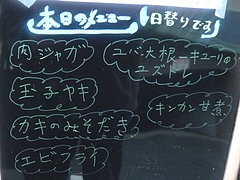 本日のメニュー 日替りです
肉ジャガ
玉子ヤキ
カキのみそだき
エビフライ
ユバ・大根・キューリの
ユズドレ
キンカン甘煮